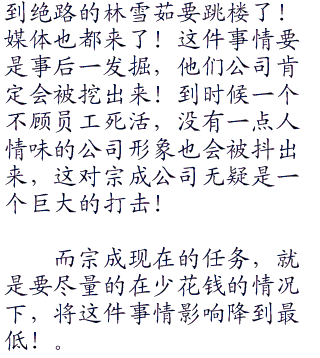 到绝路的林雪茹要跳楼了！
媒体也都来了！这件事情要
是事后一发掘，他们公司肯
定会被挖出来！到时候一个
不顾员工死活，没有一点人
情味的公司形象也会被抖出
来，这对宗成公司无疑是一
个巨大的打击！
而宗成现在的任务，就
是要尽量的在少花钱的情况
下，将这件事情影响降到最
低！。